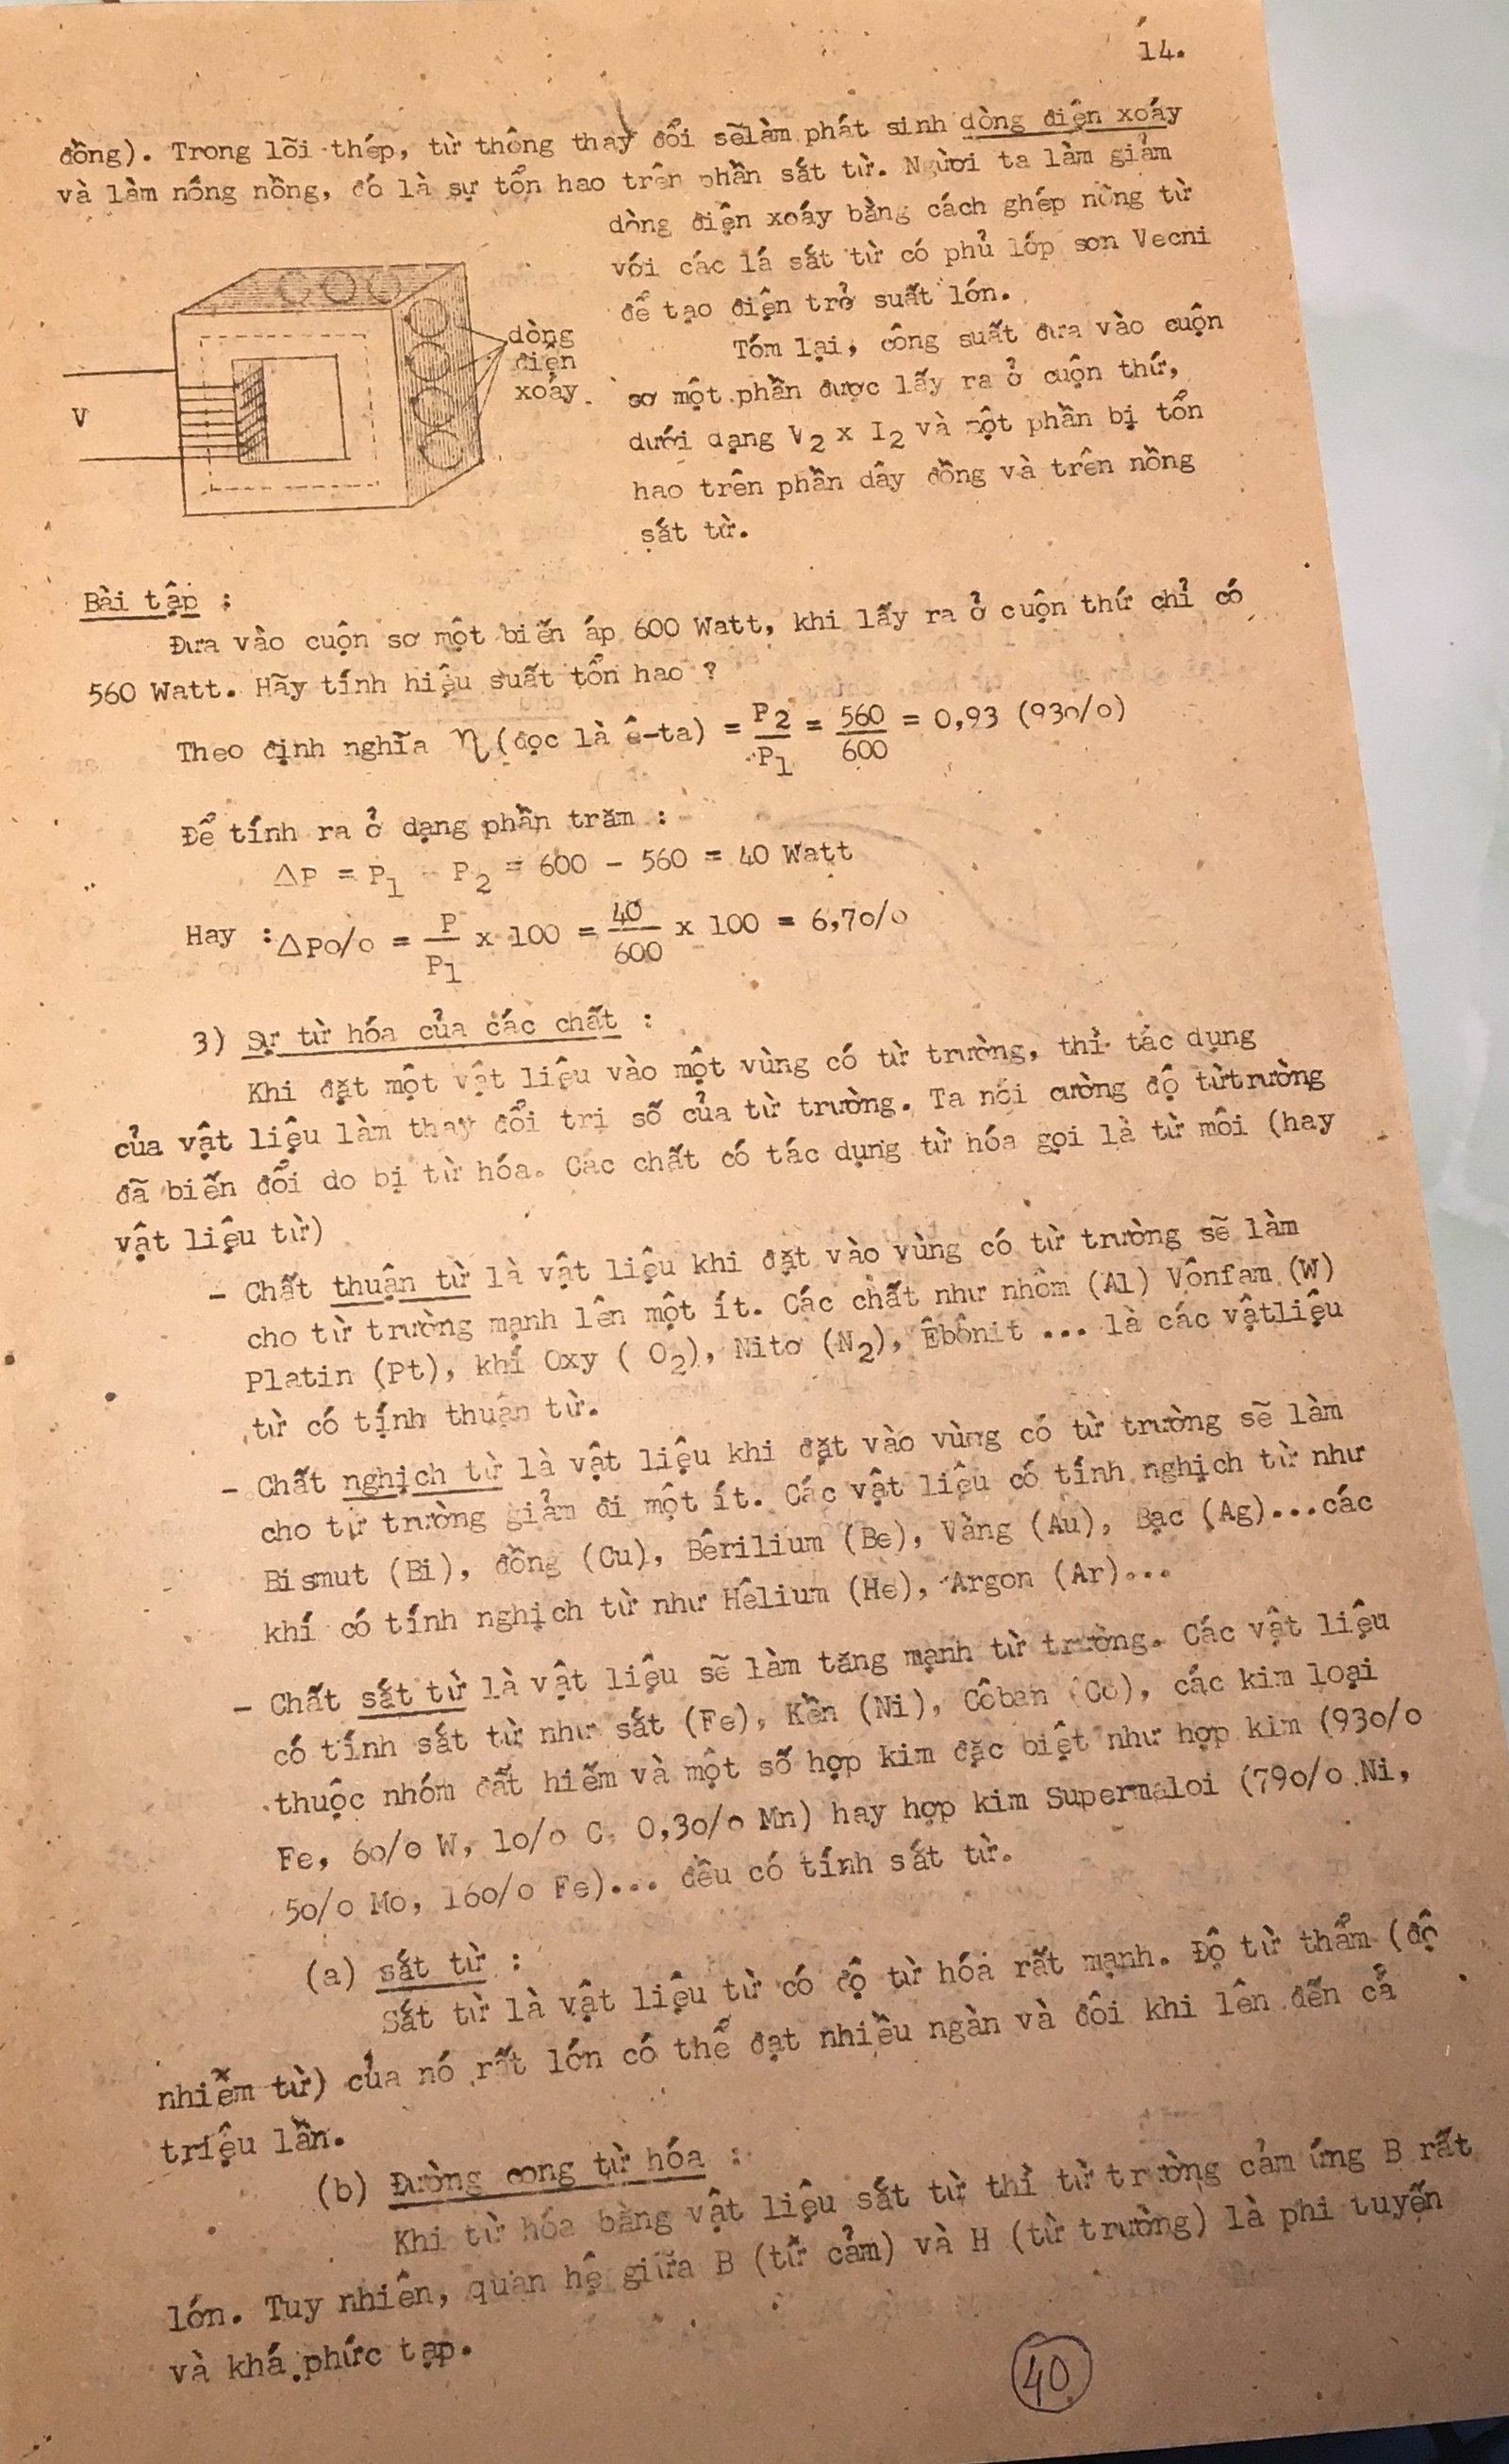 14.
đồng). Trong lõi thép, từ thông thay đổi sẽlàm phát sinh dòng điện xoáy
và làm nóng nồng, đó là sự tổn hao trên phần sắt từ. Người ta làm giảm
dòng điện xoáy bằng cách ghép nồng từ
với các lá sắt từ có phủ lớp sơn Vecni
để tạo điện trở suất lớn.
dòng
điện
xoáy
V
Tóm lại, công suất đưa vào cuộn
sơ một phần được lấy ra ở cuộn thứ,
dưới dạng V2 x I2 và một phần bị tổn
hao trên phần dây đồng và trên nồng
sắt từ.
Bài tập :
Đưa vào cuộn sơ một biến áp 600 Watt, khi lấy ra ở cuộn thứ chỉ có
560 Watt. Hãy tính hiệu suất tổn hao ?
Theo định nghĩa η (đọc là ê-ta) = P2/P1 = 560/600 = 0,93 (93o/o)
Để tính ra ở dạng phần trăm :
△P = P1 - P2 = 600 - 560 = 40 Watt
Hay : △Po/o = P/P1 x 100 = 40/600 x 100 = 6,7o/o
3) Sự từ hóa của các chất :
Khi đặt một vật liệu vào một vùng có từ trường, thì tác dụng
của vật liệu làm thay đổi trị số của từ trường. Ta nói cường độ từtrường
đã biến đổi do bị từ hóa. Các chất có tác dụng từ hóa gọi là từ môi (hay
vật liệu từ)
- Chất thuận từ là vật liệu khi đặt vào vùng có từ trường sẽ làm
cho từ trường mạnh lên một ít. Các chất như nhôm (Al) Vônfam (W)
Platin (Pt), khí Oxy ( O2), Nitơ (N2), Êbônit ... là các vậtliệu
từ có tính thuận từ.
- Chất nghịch từ là vật liệu khi đặt vào vùng có từ trường sẽ làm
cho từ trường giảm đi một ít. Các vật liệu có tính nghịch từ như
Bismut (Bi), đồng (Cu), Bêrilium (Be), Vàng (Au), Bạc (Ag)...các
khí có tính nghịch từ như Hêlium (He), Argon (Ar)...
- Chất sắt từ là vật liệu sẽ làm tăng mạnh từ trường. Các vật liệu
có tính sắt từ như sắt (Fe), Kền (Ni), Côban (Co), các kim loại
thuộc nhóm đất hiếm và một số hợp kim đặc biệt như hợp kim (93o/o
Fe, 6o/o W, 1o/o C, 0,3o/o Mn) hay hợp kim Supermaloi (79o/o Ni,
5o/o Mo, 16o/o Fe)... đều có tính sắt từ.
(a) sắt từ :
Sắt từ là vật liệu từ có độ từ hóa rất mạnh. Độ từ thẩm (độ
nhiễm từ) của nó rất lớn có thể đạt nhiều ngàn và đôi khi lên đến cả
triệu lần.
(b) Đường cong từ hóa :
Khi từ hóa bằng vật liệu sắt từ thì từ trường cảm ứng B rất
lớn. Tuy nhiên, quan hệ giữa B (từ cảm) và H (từ trường) là phi tuyến
và khá phức tạp.
40